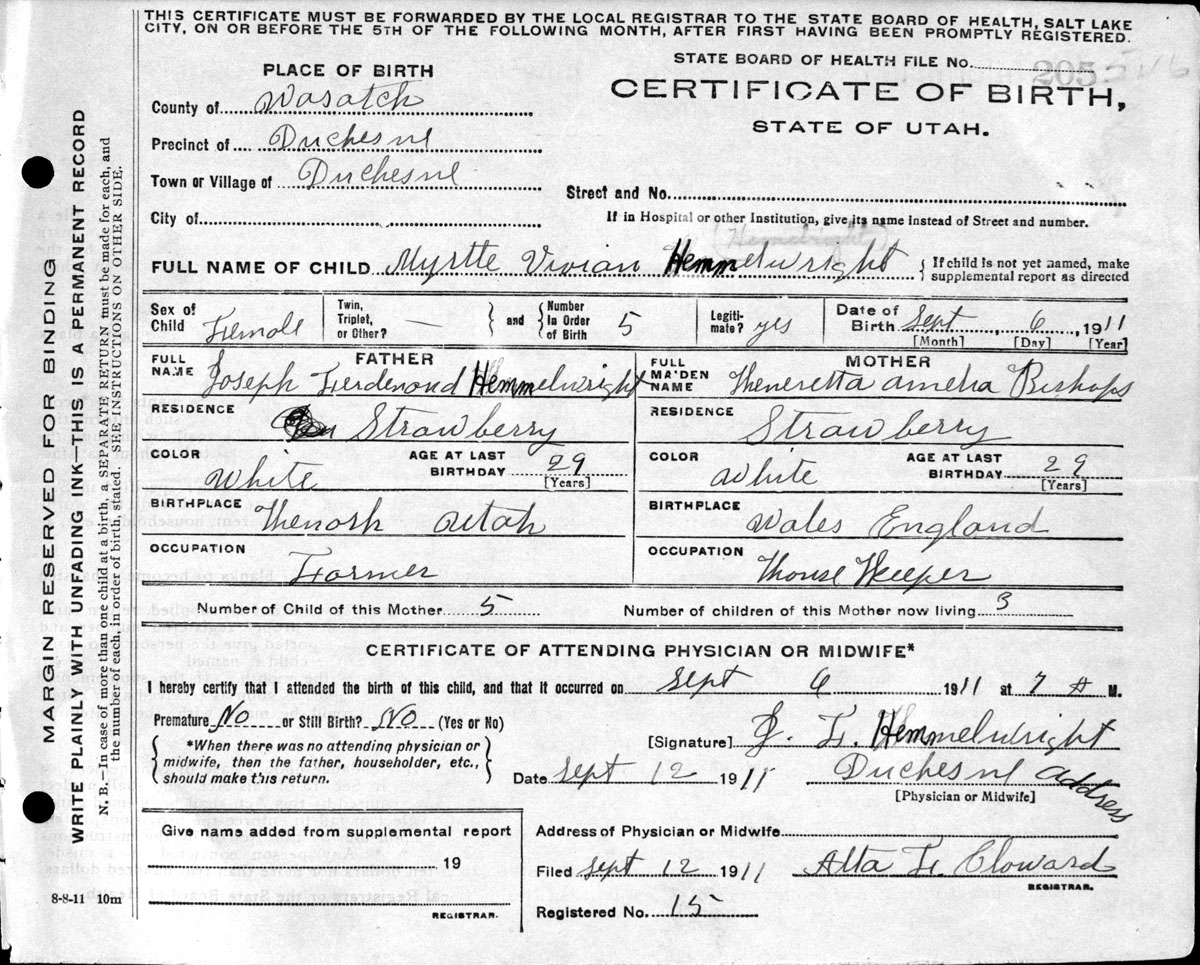 THIS CERTIFICATE MUST BE FORWARDED BY THE LOCAL REGISTRAR TO THE STATE BOARD OF HEALTH, SALT LAKE
CITY, ON OR BEFORE THE 5TH OF THE FOLLOWING MONTH, AFTER FIRST HAVING BEEN PROMPTLY REGISTERED.
STATE BOARD OF HEALTH FILE No. 205
PLACE OF BIRTH
CERTIFICATE OF BIRTH,
STATE OF UTAH.
County of Wasatch
Precinct of Duchesne
Town or Village of Duchesne
Street and No.
City of
If in Hospital or other Institution, give its name instead of Street and number.
(Hemelright)
FULL NAME OF CHILD Myrtle Vivian Hemmelwright { If child is not yet named, make
supplemental report as directed
Sex of Child Female
Twin, Triplet, or Other? —
and
Number In Order of Birth 5
Legiti- mate? yes
Date of Birth Sept 6, 1911
[Month] [Day] [Year]
FATHER
FULL NAME Joseph Ferdenand Hemmelwright
MOTHER
FULL MAIDEN NAME Heneretta amelia Bishops
RESIDENCE Strawberry
RESIDENCE Strawberry
COLOR White AGE AT LAST BIRTHDAY 29 [Years]
COLOR White AGE AT LAST BIRTHDAY 29 [Years]
BIRTHPLACE Kenosh Utah
BIRTHPLACE Wales England
OCCUPATION Farmer
OCCUPATION House Keeper
Number of Child of this Mother 5 Number of children of this Mother now living 3
CERTIFICATE OF ATTENDING PHYSICIAN OR MIDWIFE*
I hereby certify that I attended the birth of this child, and that it occurred on Sept 6 1911 at 7 A M.
Premature No or Still Birth? No (Yes or No)
*When there was no attending physician or
midwife, then the father, householder, etc.,
should make this return.
[Signature] J. F. Hemmelwright
Date Sept 12 1911 Duchesne Address
[Physician or Midwife]
Give name added from supplemental report
19
REGISTRAR.
Address of Physician or Midwife
Filed Sept 12 1911 Alta F. Cloward
REGISTRAR.
Registered No. 15
8-8-11 10m
MARGIN RESERVED FOR BINDING
WRITE PLAINLY WITH UNFADING INK—THIS IS A PERMANENT RECORD
N. B.—In case of more than one child at a birth, a SEPARATE RETURN must be made for each, and
the number of each, in order of birth, stated. SEE INSTRUCTIONS ON OTHER SIDE.